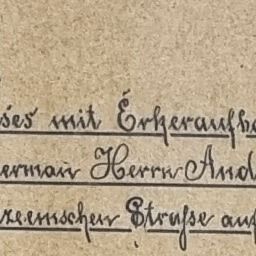 ses mit Erkeraufba
ermair Herrn And
zeemschen Straße auf